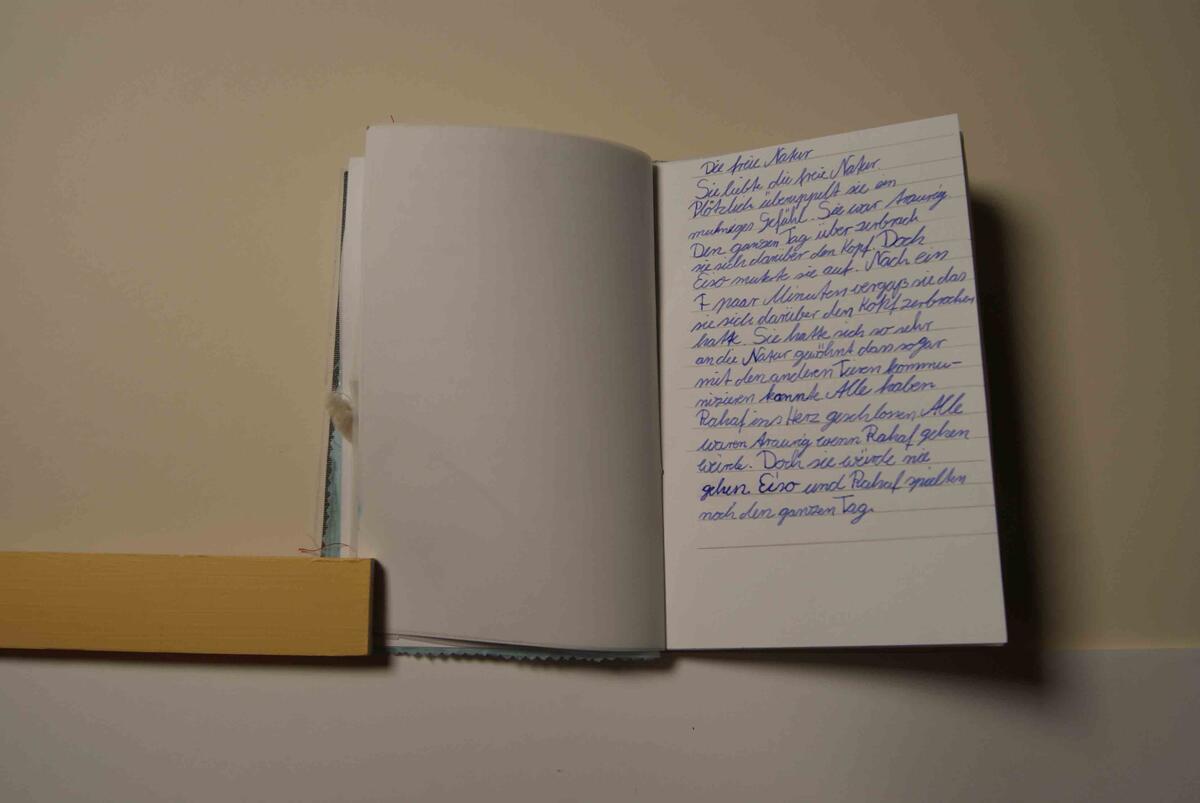 Die freie Natur
Sie liebte die freie Natur.
Plötzlich überruppelt sie ein
Gefühl. Sie war traurig
Den ganzen Tag über zerbrach
sie sich darüber den Kopf. Doch
Eiso mukste sie auf. Nach ein
paar Minuten vergaß sie das
sie sich darüber den Kopf zerbrochen
hatte. Sie hatte sich so sehr
an die Natur gewöhnt das sogar
mit den anderen Tieren kommu-
nizieren konnte Alle haben
Rahaf ins Herz geschlossen Alle
waren traurig wenn Rahaf gehen
würde. Doch sie würde nie
gehen Eiso und Rahaf spielten
noch den ganzen Tag.